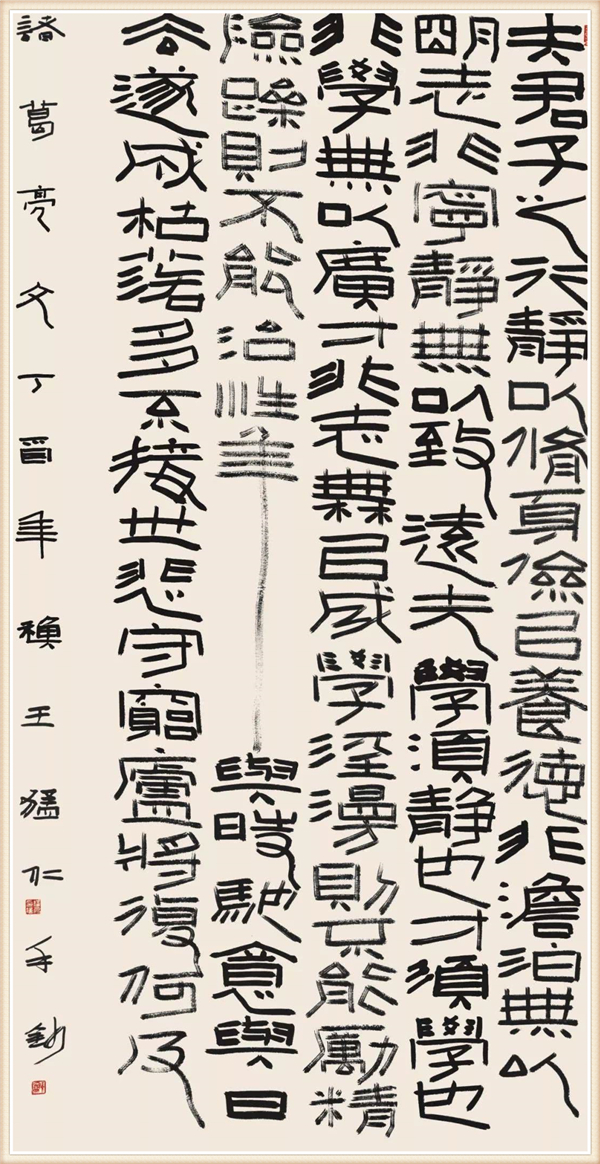 夫君子之行靜以脩身儉㠯養德非澹泊無以
明志非寧靜無以致遠夫學須靜也才須學也
非學無以廣才非志無㠯成學淫漫則不能勵精
險躁則不能治性年與時馳意與日
去遂成枯落多不接世悲守窮廬將復何及
諸葛亮文丁酉年穐王猛仁手鈔